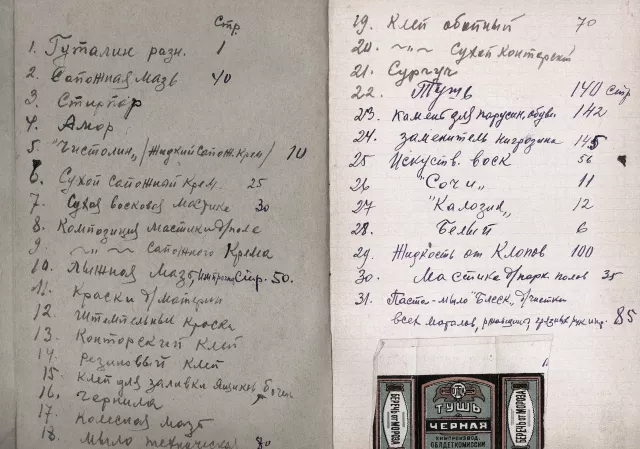 Стр.
1. Гуталин разн. 1
2. Сапожная мазь 40
3. Стирпор
4. Амор
5. "Чистолин" /Жидкий сапож. крем/ 10
6. Сухой сапожный крем. 25
7. Сухая восковая мастика 30
8. Композиция мастики д/пола
9. ~"~ сапожного крема
10. Лыжная мазь, Стр. 50.
11. Краски д/материи
12. Штемпельный краска
13. Конторский клей
14. Резиновый клей
15. Клей для заливки ящиков, бочек
16. Чернила
17. Колесная мазь
18. Мыло техническое 80
19. Клей обойный 70
20. ~"~ Сухой Конторский
21. Сургуч
22. Тушь 140 стр
23. Камент для парусин. обуви. 142
24. заменитель нигрозина 145
25 Искуств. воск 56
26 "Сочи" 11
27 "Калозин" 12
28. Белый 6
29. Жидкость от Клопов 100
30. Мастика д/парк. полов 35
31. Паста-мыло "Блеск" д/чистки
всех металов, 85
БЕРЕЧЬ ОТ МОРОЗА
ТУШЬ
ЧЕРНАЯ
ХИМПРОИЗВОД.
ОБЛДЕТКОМИССИИ
БЕРЕЧЬ ОТ МОРОЗА